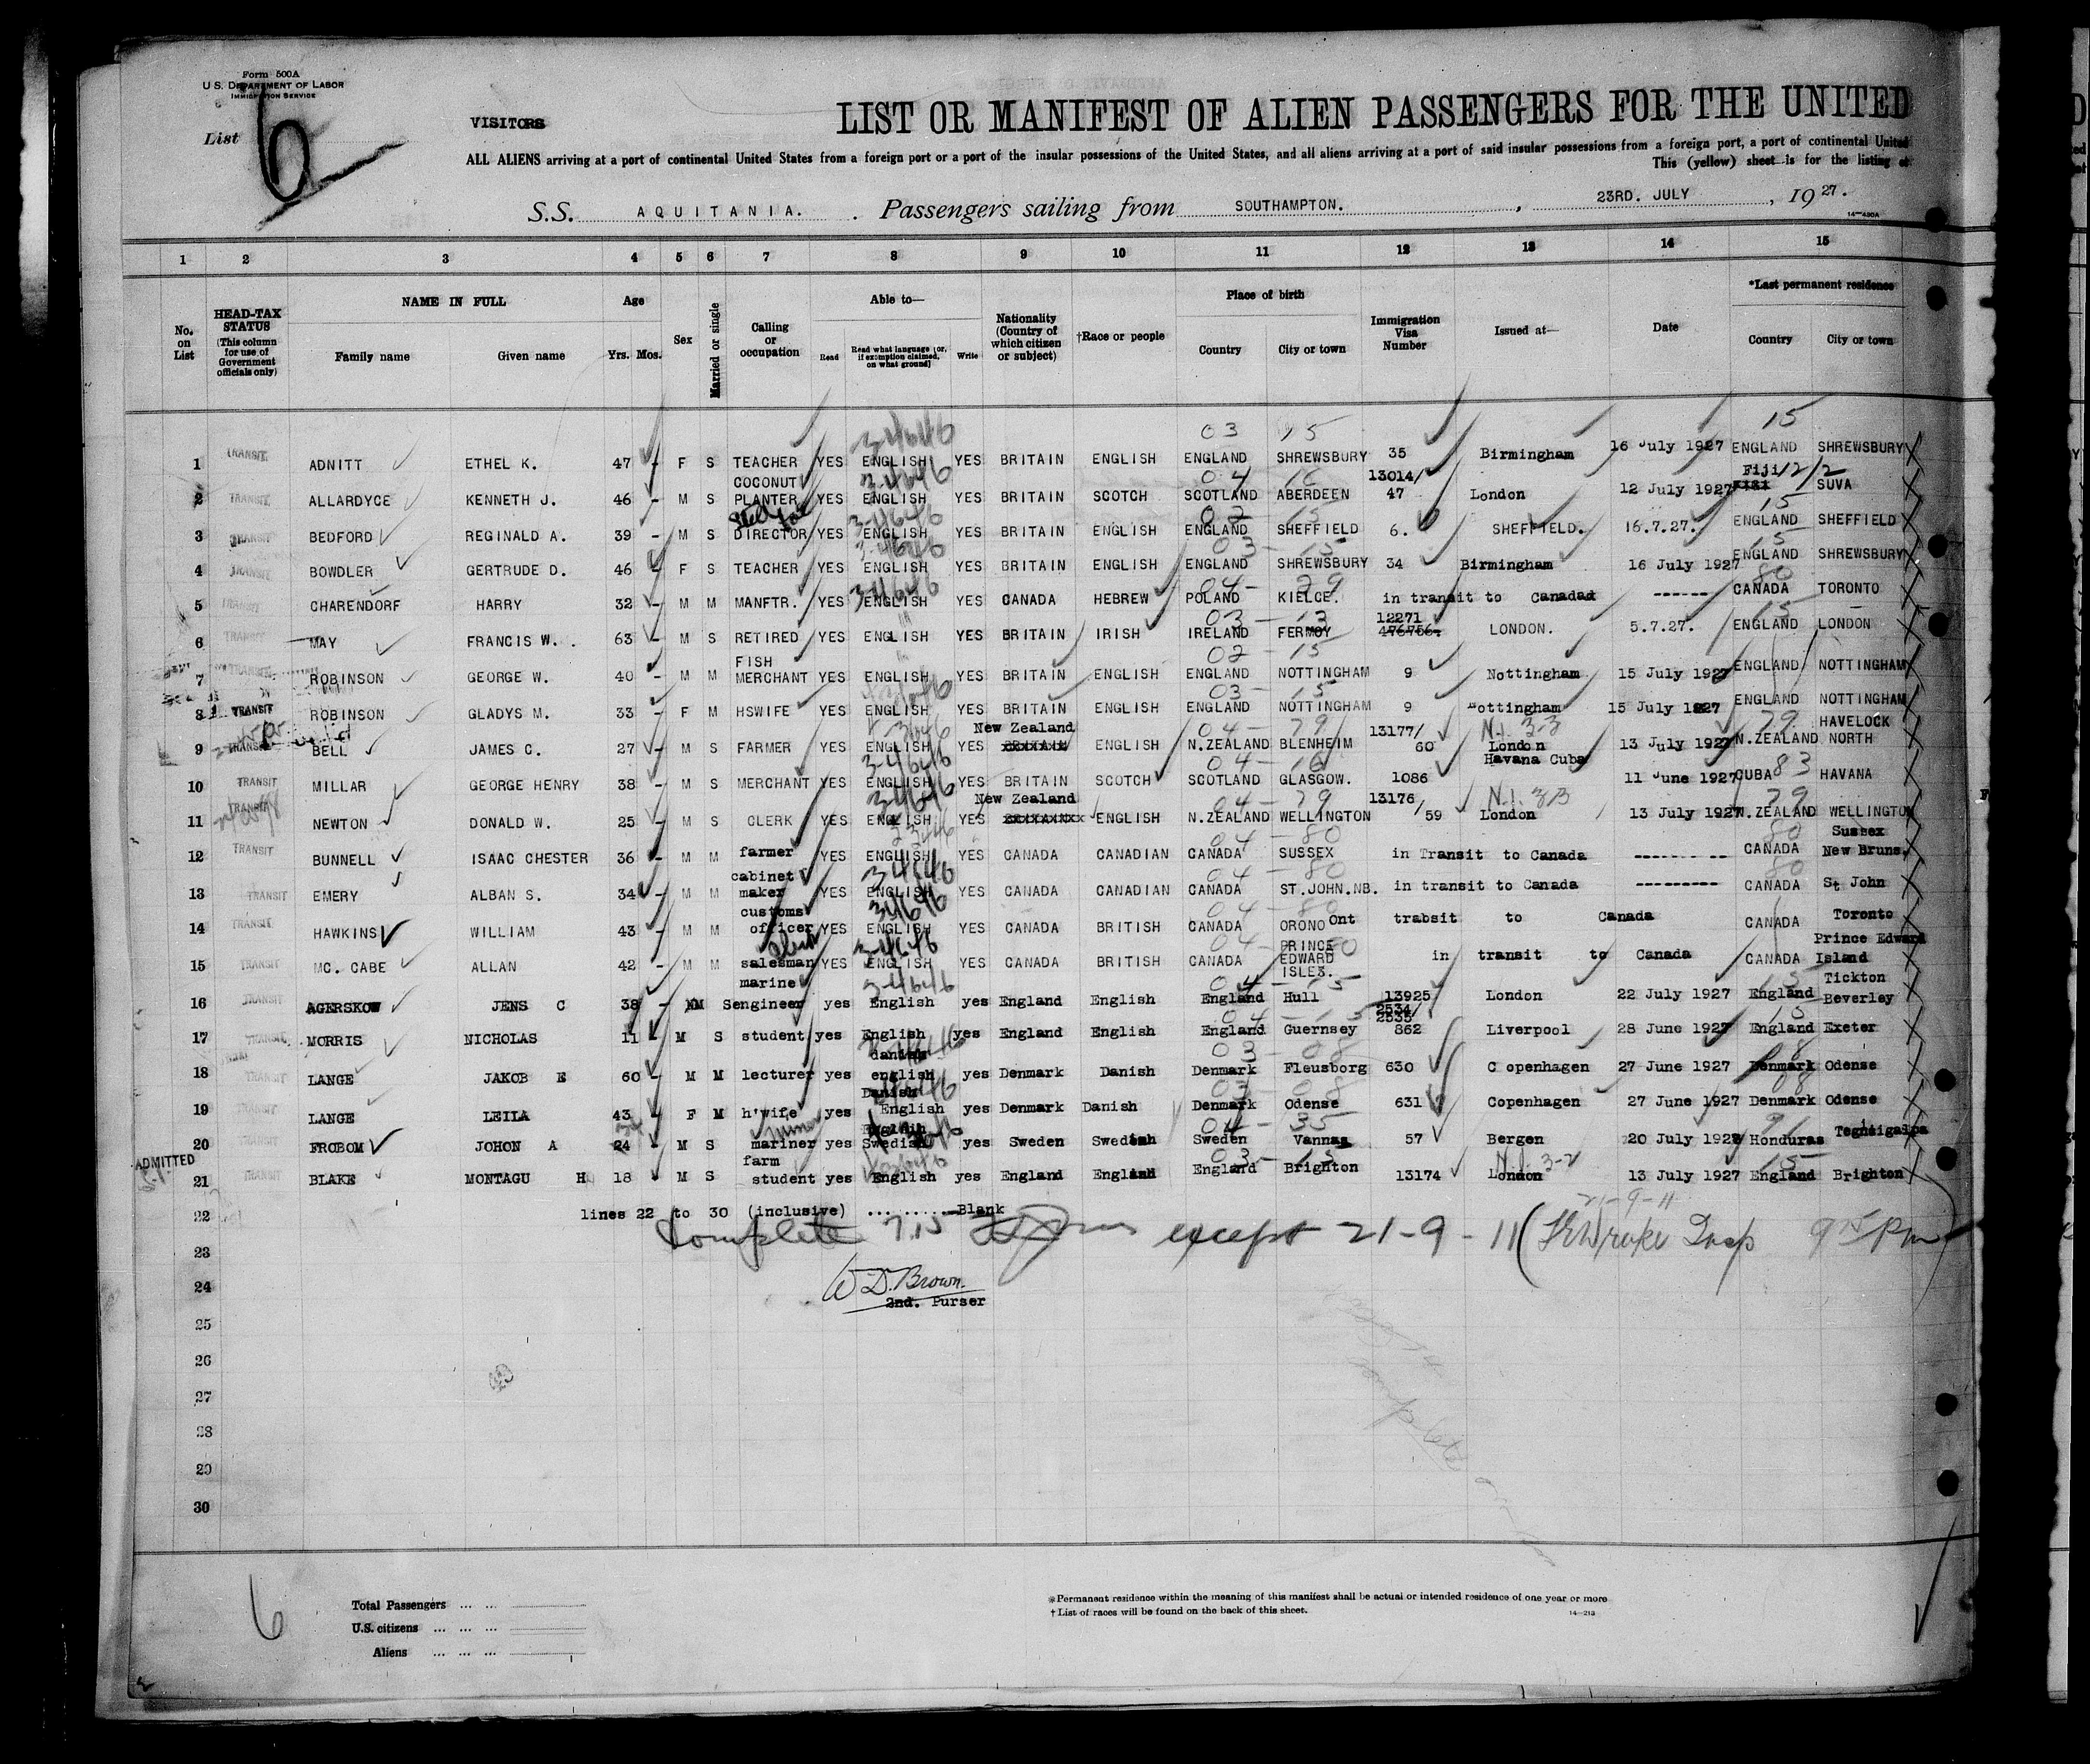 Form 500A
U. S. DEPARTMENT OF LABOR
IMMIGRATION SERVICE
List 6
VISITORS
LIST OR MANIFEST OF ALIEN PASSENGERS FOR THE UNITED
ALL ALIENS arriving at a port of continental United States from a foreign port or a port of the insular possessions of the United States, and all aliens arriving at a port of said insular possessions from a foreign port, a port of continental United
This (yellow) sheet is for the listing of
S.S. AQUITANIA. Passengers sailing from SOUTHAMPTON. , 23RD. JULY , 19 27.
14—430A
1 2 3 4 5 6 7 8 9 10 11 12 13 14 15
No. on List
HEAD-TAX STATUS (This column for use of Government officials only)
NAME IN FULL Family name Given name
Age Yrs. Mos.
Sex
Married or single
Calling or occupation
Able to— Read Read what language [or, if exemption claimed, on what ground] Write
Nationality (Country of which citizen or subject)
†Race or people
Place of birth Country City or town
Immigration Visa Number
Issued at—
Date
*Last permanent residence Country City or town
1 TRANSIT ADNITT ETHEL K. 47 - F S TEACHER YES ENGLISH YES BRITAIN ENGLISH ENGLAND SHREWSBURY 35 Birmingham 16 July 1927 ENGLAND SHREWSBURY
2 TRANSIT ALLARDYCE KENNETH J. 46 - M S COCONUT PLANTER YES ENGLISH YES BRITAIN SCOTCH SCOTLAND ABERDEEN 13014/47 London 12 July 1927 Fiji SUVA
3 TRANSIT BEDFORD REGINALD A. 39 - M S DIRECTOR YES ENGLISH YES BRITAIN ENGLISH ENGLAND SHEFFIELD 6. SHEFFIELD. 16.7.27. ENGLAND SHEFFIELD
4 TRANSIT BOWDLER GERTRUDE D. 46 - F S TEACHER YES ENGLISH YES BRITAIN ENGLISH ENGLAND SHREWSBURY 34 Birmingham 16 July 1927 ENGLAND SHREWSBURY
5 TRANSIT CHARENDORF HARRY 32 - M M MANFTR. YES ENGLISH YES CANADA HEBREW POLAND KIELCE. in transit to Canadad ------ CANADA TORONTO
6 TRANSIT MAY FRANCIS W. . 63 - M S RETIRED YES ENGLISH YES BRITAIN IRISH IRELAND FERMOY 12271 476756. LONDON. 5.7.27. ENGLAND LONDON
7 TRANSIT ROBINSON GEORGE W. 40 - M M FISH MERCHANT YES ENGLISH YES BRITAIN ENGLISH ENGLAND NOTTINGHAM 9 Nottingham 15 July 1927 ENGLAND NOTTINGHAM
8 TRANSIT ROBINSON GLADYS M. 33 - F M HSWIFE YES ENGLISH YES BRITAIN ENGLISH ENGLAND NOTTINGHAM 9 Nottingham 15 July 1927 ENGLAND NOTTINGHAM
9 TRANSIT BELL JAMES C. 27 - M S FARMER YES ENGLISH YES New Zealand ENGLISH N.ZEALAND BLENHEIM 13177/60 London 13 July 1927 N.ZEALAND HAVELOCK NORTH
10 TRANSIT MILLAR GEORGE HENRY 38 - M S MERCHANT YES ENGLISH YES BRITAIN SCOTCH SCOTLAND GLASGOW. 1086 Havana Cuba 11 June 1927 CUBA HAVANA
11 TRANSIT NEWTON DONALD W. 25 - M S CLERK YES ENGLISH YES New Zealand ENGLISH N.ZEALAND WELLINGTON 13176/59 London 13 July 1927 N.ZEALAND WELLINGTON
12 TRANSIT BUNNELL ISAAC CHESTER 36 - M M farmer YES ENGLISH YES CANADA CANADIAN CANADA SUSSEX in Transit to Canada --------- CANADA Sussex New Bruns.
13 TRANSIT EMERY ALBAN S. 34 - M M cabinet maker YES ENGLISH YES CANADA CANADIAN CANADA ST.JOHN.NB. in transit to Canada --------- CANADA St John
14 TRANSIT HAWKINS WILLIAM 43 - M M customs officer YES ENGLISH YES CANADA BRITISH CANADA ORONO Ont trabsit to Canada CANADA Toronto
15 TRANSIT MC. CABE ALLAN 42 - M M salesman YES ENGLISH YES CANADA BRITISH CANADA PRINCE EDWARD ISLES. in transit to Canada CANADA Prince Edward Island
16 TRANSIT AGERSKOW JENS C 38 - M S marine engineer yes English yes England English England Hull 13925 2534/2535 London 22 July 1927 England Tickton Beverley
17 TRANSIT MORRIS NICHOLAS 11 - M S student yes English yes England English England Guernsey 862 Liverpool 28 June 1927 England Exeter
18 TRANSIT LANGE JAKOB E 60 - M M lecturer yes danish english yes Denmark Danish Denmark Flensborg 630 Copenhagen 27 June 1927 Denmark Odense
19 TRANSIT LANGE LEILA 43 - F M h'wife yes Danish English yes Denmark Danish Denmark Odense 631 Copenhagen 27 June 1927 Denmark Odense
20 TRANSIT FROBOM JOHON A 24 - M S mariner yes English Swedish yes Sweden Swedish Sweden Vannas 57 Bergen 20 July 1927 Honduras
ADMITTED
21 TRANSIT BLAKE MONTAGU H 18 - M S farm student yes English yes England English England Brighton 13174 London 13 July 1927 England Brighton
22 lines 22 to 30 (inclusive) .......... Blank
23 Complete 7.15 except 21-9-11 Insp 9 15 pm
24 W D. Brown.
2nd. Purser
25
26
27
28
29
30
6
Total Passengers ... ...
U.S. citizens ... ... ...
Aliens ... ... ...
*Permanent residence within the meaning of this manifest shall be actual or intended residence of one year or more
† List of races will be found on the back of this sheet.
14—213